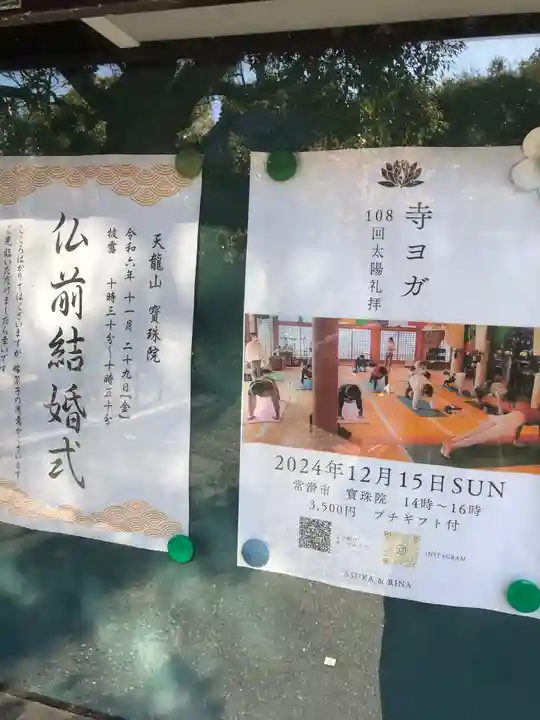 天龍山 寳珠院
令和六年 十一月 二十九日『金』
披露 十時三十分〜十時五十分
仏前結婚式
寺ヨガ
108回太陽礼拝
2024年12月15日SUN
常滑市 寳珠院 14時〜16時
3,500円 プチギフト付
INSTAGRAM
ASUKA & RINA